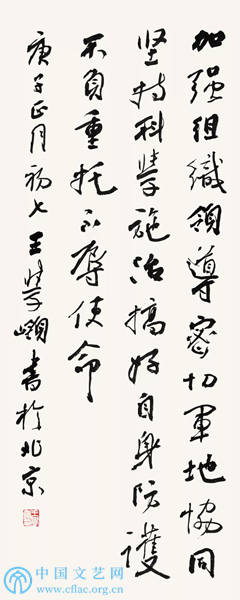 加强组织领导密切军地协同
坚持科学施治搞好自身防護
不負重托不辱使命
庚子正月初七王学岭書於北京
中国文艺网
www.cflac.org.cn